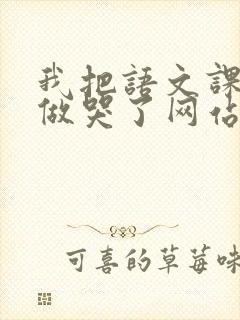 我把語文課
做哭了网佔
可喜的草莓味